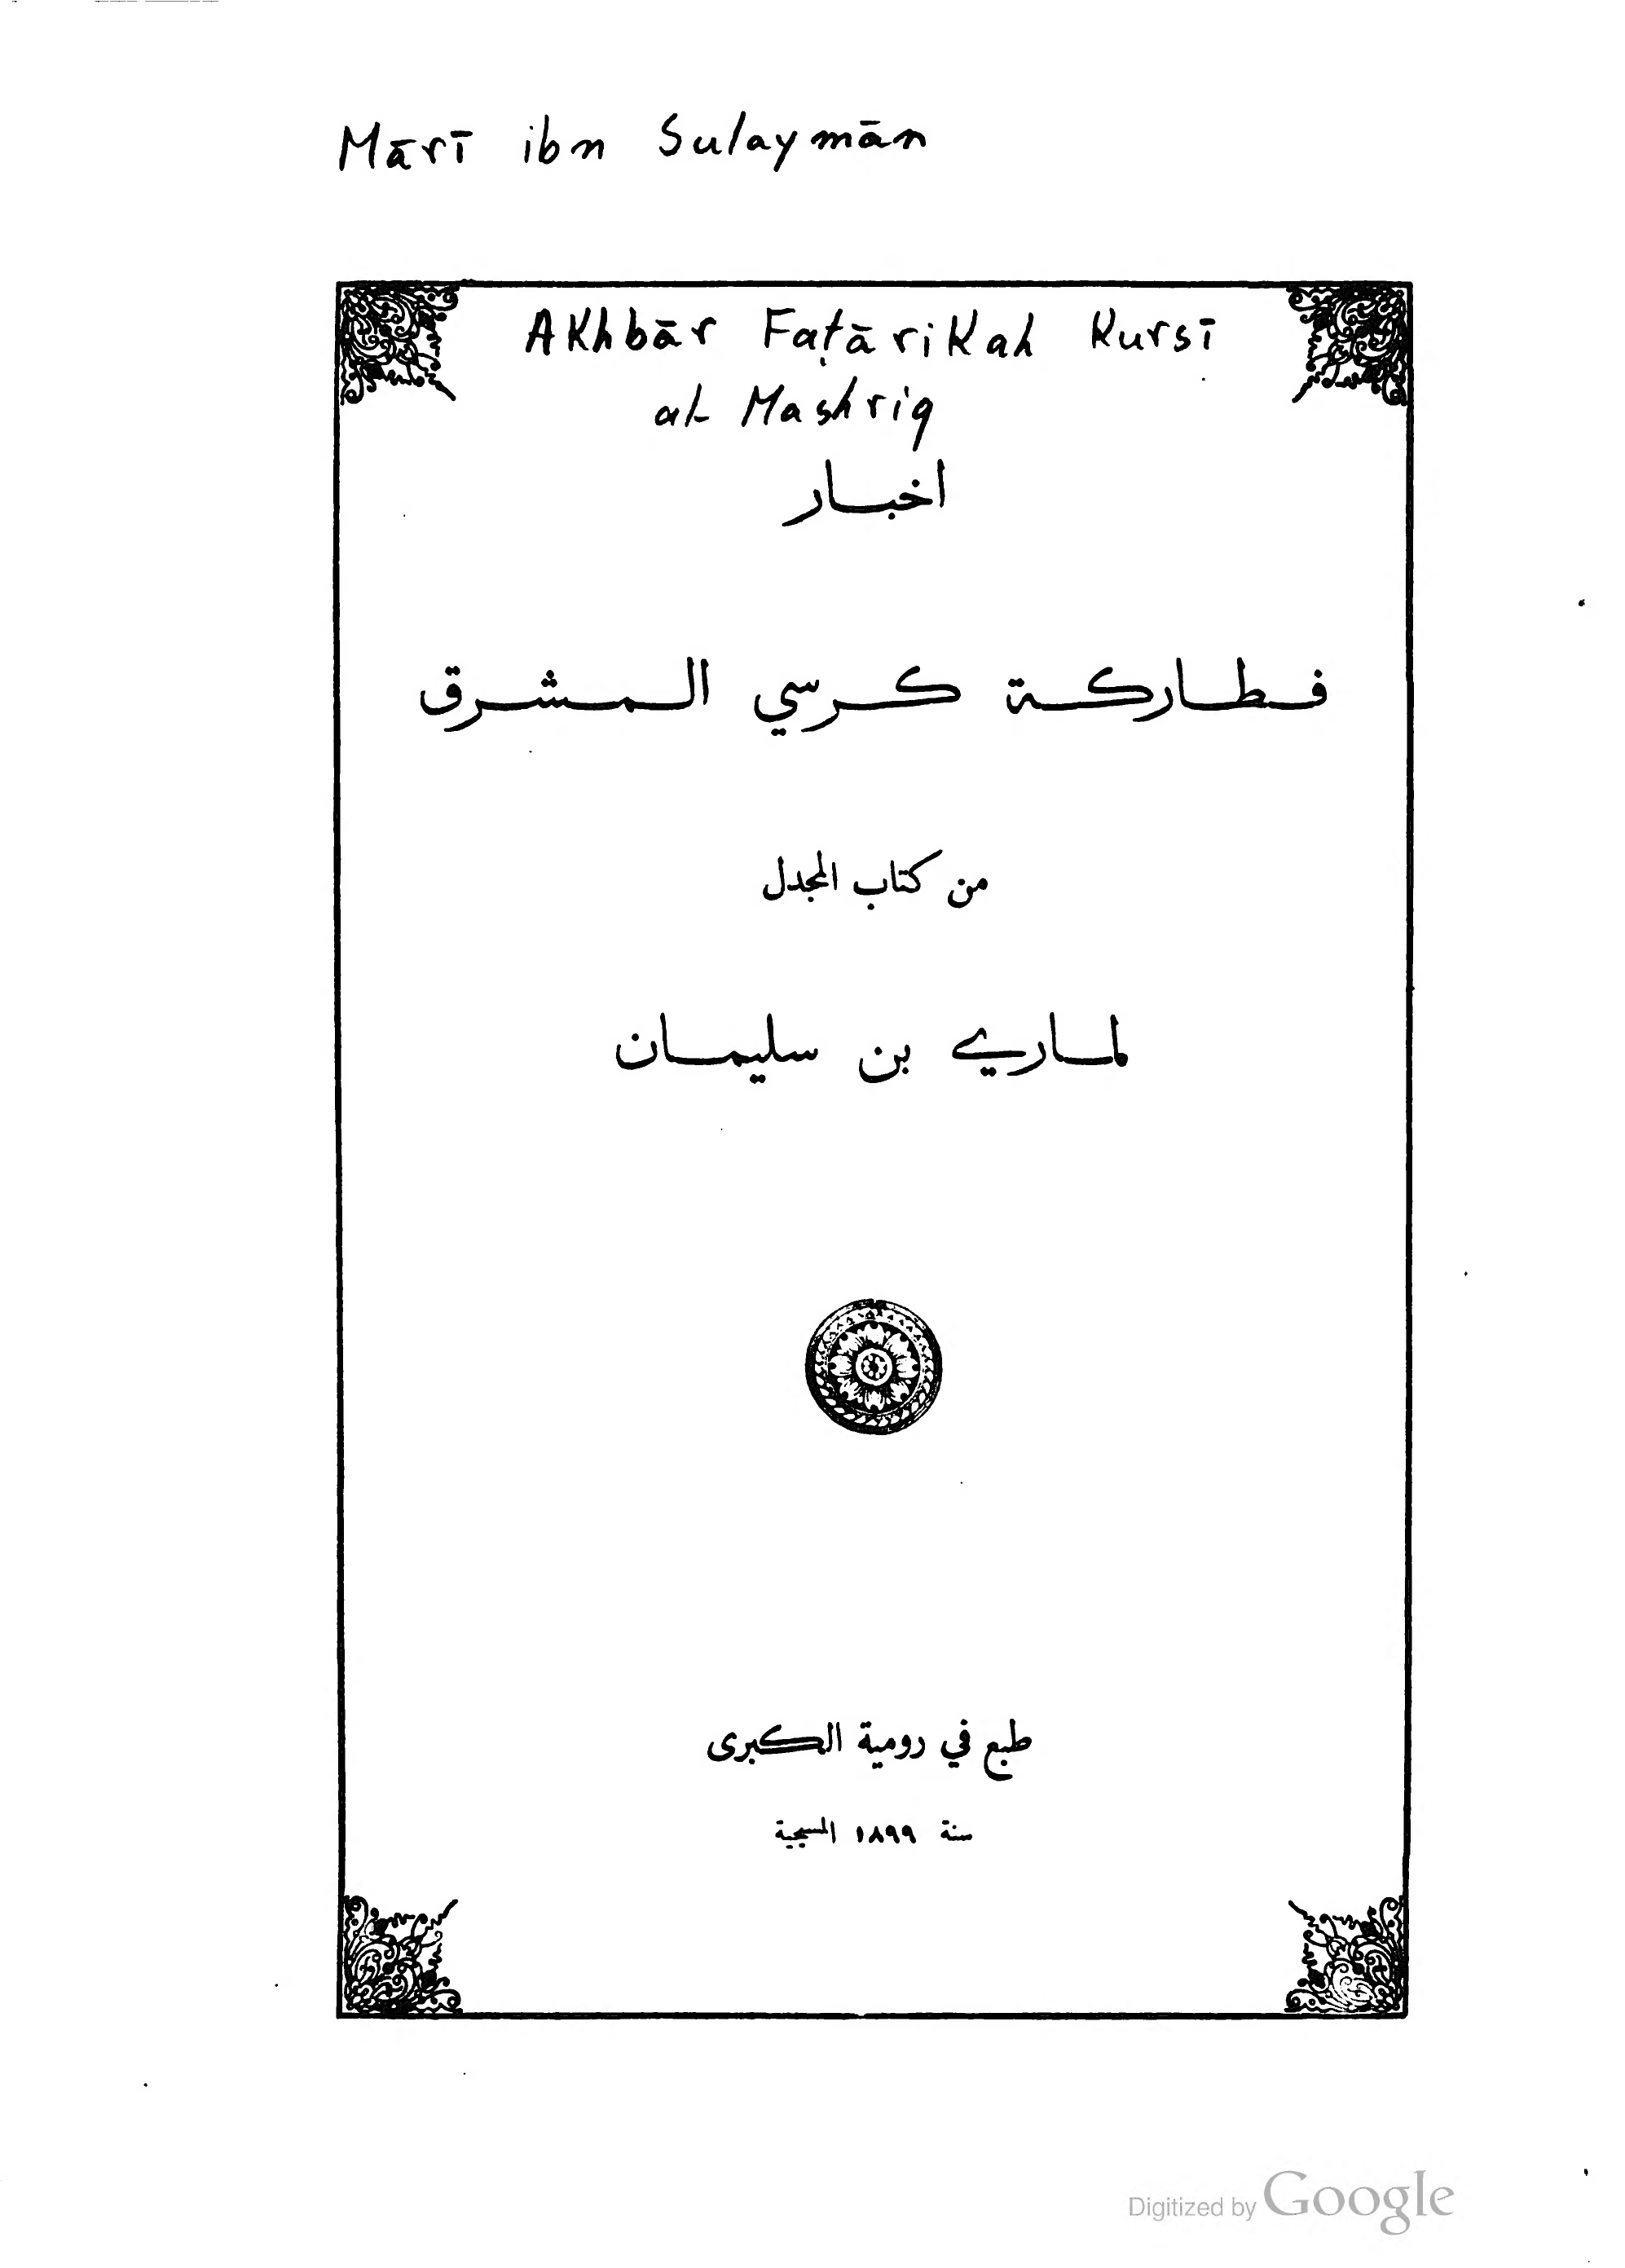 Mārī ibn Sulaymān
Akhbār Faṭārikah Kursī
al-Mashriq
اخبار
فطاركة كرسي المشرق
من كتاب المجدل
لماري بن سليمان
طبع في رومية الكبرى
سنة ١٨٩٩ المسيحية
Digitized by Google